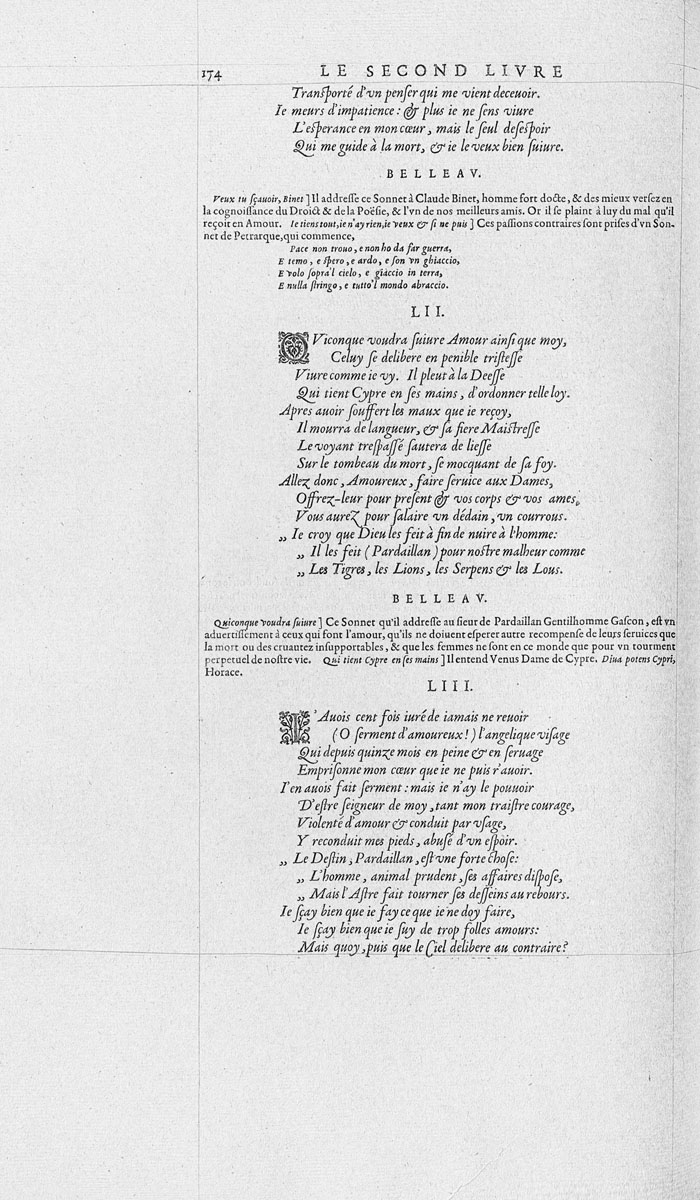 174 LE SECOND LIVRE
Tranſporté d'vn penſer qui me vient deceuoir.
Ie meurs d'impatience : & plus ie ne ſens viure
L'eſperance en mon cœur, mais le ſeul deſeſpoir
Qui me guide à la mort, & ie le veux bien ſuiure.
BELLEAV.
Veux tu ſçauoir, Binet ] Il addreſſe ce Sonnet à Claude Binet, homme fort docte, & des mieux verſez en
la cognoiſſance du Droict & de la Poëſie, & l'vn de nos meilleurs amis. Or il ſe plaint à luy du mal qu'il
reçoit en Amour. Ie tiens tout, ie n'ay rien, ie veux & ſi ne puis ] Ces paſſions contraires ſont priſes d'vn Son-
net de Petrarque, qui commence,
Pace non trouo, e non ho da far guerra,
E temo, e ſpero, e ardo, e ſon vn ghiaccio,
E volo ſopra'l cielo, e giaccio in terra,
E nulla ſtringo, e tutto'l mondo abraccio.
LII.
QViconque voudra ſuiure Amour ainſi que moy,
Celuy ſe delibere en penible triſteſſe
Viure comme ie vy. Il pleut à la Deeſſe
Qui tient Cypre en ſes mains, d'ordonner telle loy.
Apres auoir ſouffert les maux que ie reçoy,
Il mourra de langueur, & ſa fiere Maiſtreſſe
Le voyant treſpaſſé ſautera de lieſſe
Sur le tombeau du mort, ſe mocquant de ſa foy.
Allez donc, Amoureux, faire ſeruice aux Dames,
Offrez-leur pour preſent & vos corps & vos ames,
Vous aurez pour ſalaire vn dédain, vn courrous.
„ Ie croy que Dieu les feit à fin de nuire à l'homme:
„ Il les feit ( Pardaillan ) pour noſtre malheur comme
„ Les Tigres, les Lions, les Serpens & les Lous.
BELLEAV.
Quiconque voudra ſuiure ] Ce Sonnet qu'il addreſſe au ſieur de Pardaillan Gentilhomme Gaſcon, eſt vn
aduertiſſement à ceux qui font l'amour, qu'ils ne doiuent eſperer autre recompenſe de leurs ſeruices que
la mort ou des cruautez inſupportables, & que les femmes ne ſont en ce monde que pour vn tourment
perpetuel de noſtre vie. Qui tient Cypre en ſes mains ] Il entend Venus Dame de Cypre. Diua potens Cypri,
Horace.
LIII.
I'Auois cent fois iuré de iamais ne reuoir
( O ſerment d'amoureux ! ) l'angelique viſage
Qui depuis quinze mois en peine & en ſeruage
Empriſonne mon cœur que ie ne puis r'auoir.
I'en auois fait ſerment : mais ie n'ay le pouuoir
D'eſtre ſeigneur de moy, tant mon traiſtre courage,
Violenté d'amour & conduit par vſage,
Y reconduit mes pieds, abuſé d'vn eſpoir.
„ Le Deſtin, Pardaillan, eſt vne forte choſe:
„ L'homme, animal prudent, ſes affaires diſpoſe,
„ Mais l'Aſtre fait tourner ſes deſſeins au rebours.
Ie ſçay bien que ie fay ce que ie ne doy faire,
Ie ſçay bien que ie ſuy de trop folles amours:
Mais quoy, puis que le Ciel delibere au contraire?